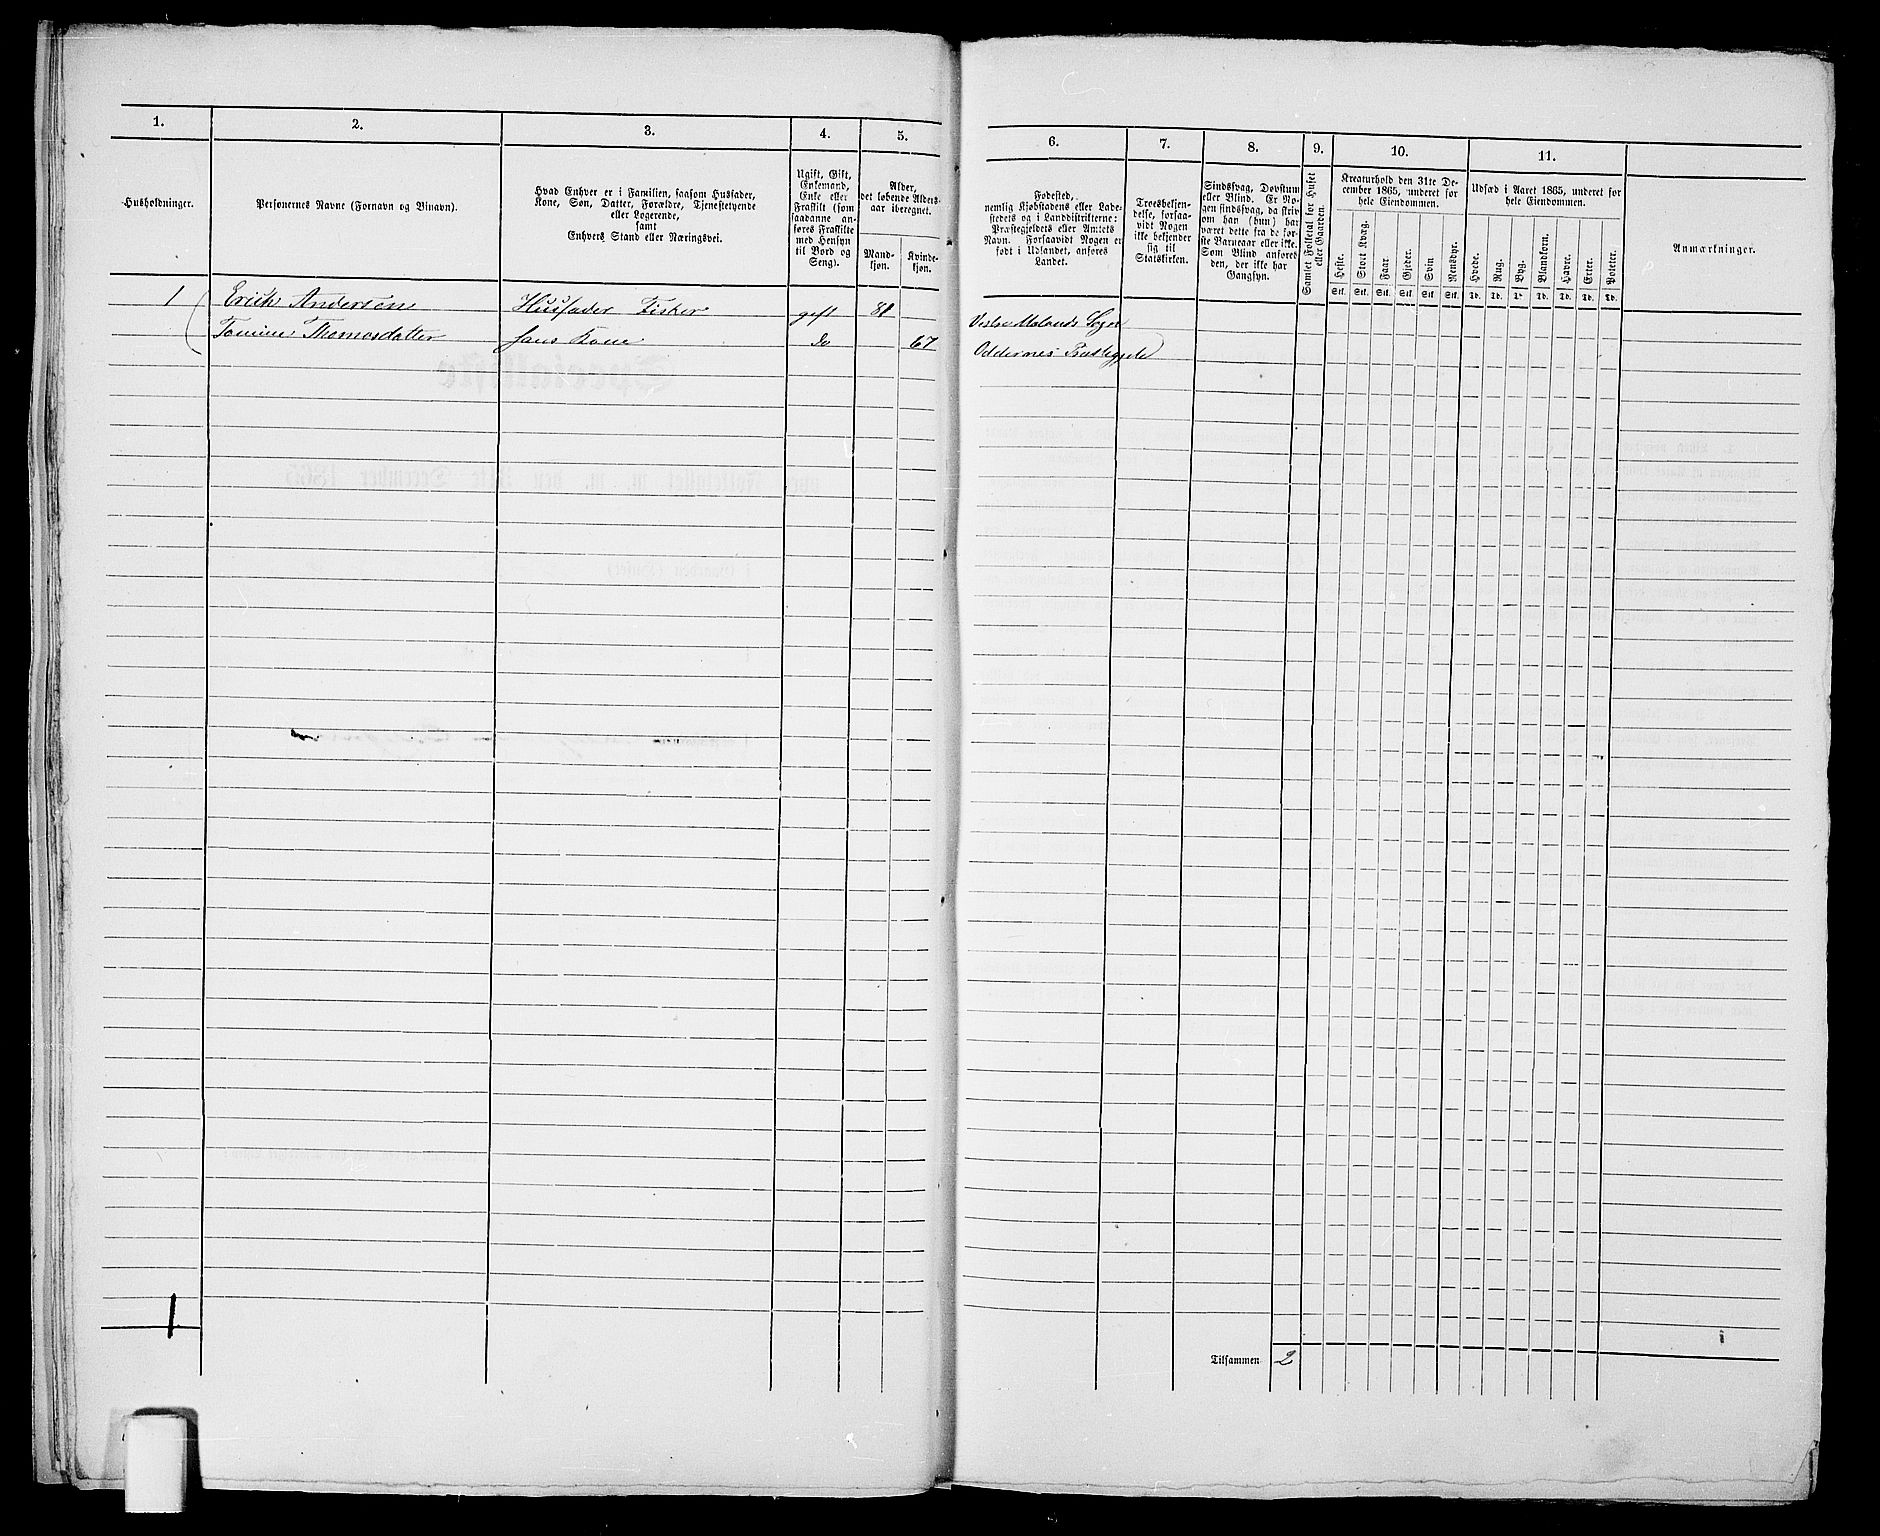 1.
2.
3.
4.
5.
Husholdninger.
Personernes Navne (Fornavn og Binavn).
Hvad Enhver er i Familien, saasom Husfader,
Kone, Søn, Datter, Forældre, Tjenestetyende
eller Logerende,
samt
Enhvers Stand eller Næringsvei.
Ugift, Gift,
Enkemand,
Enke eller
Fraskilt (som
saadanne an-
føres Fraskilte
med Hensyn
til Bord og
Seng).
Alder,
det løbende Alders-
aar iberegnet.
Mand-
kjøn.
Kvinde-
kjøn.
1 Erich Andersen Husfader Fisker gift 81
Thomasdatter hans Kone Do 67
1
6.
7.
8.
9.
10.
11.
Fødested,
nemlig Kjøbstadens eller Lade-
stedets og i Landdistrikterne:
Præstegjeldets eller Amtets
Navn. Forsaavidt Nogen er
født i Udlandet, anføres
Landet.
Troesbekjen-
delse, forsaa-
vidt Nogen
ikke bekjender
sig til
Statskirken.
Sindssvag, Døvstum
eller Blind. Er No-
gen sindssvag, da skriv
om han (hun) har
været dette fra de før-
ste Barneaar eller ikke.
Som Blind anføres
den, der ikke har
Gangsyn.
Samlet Folketal for Huset
eller Gaarden.
Kreaturhold den 31te De-
cember 1865, underet for
hele Eiendommen.
Heste.
Stort Kvæg.
Faar
Gjeder.
Svin
Rensdyr.
Stk. Stk. Stk. Stk. Stk. Stk.
Udsæd i Aaret 1865, underet for
hele Eiendommen.
Hvede.
Rug.
Byg.
Blandkorn.
Havre.
Erter.
Poteter.
Td. Td. Td. Td. Td. Td. Td.
Anmærkninger.
Sogn
Oddernes
Tilsammen 2